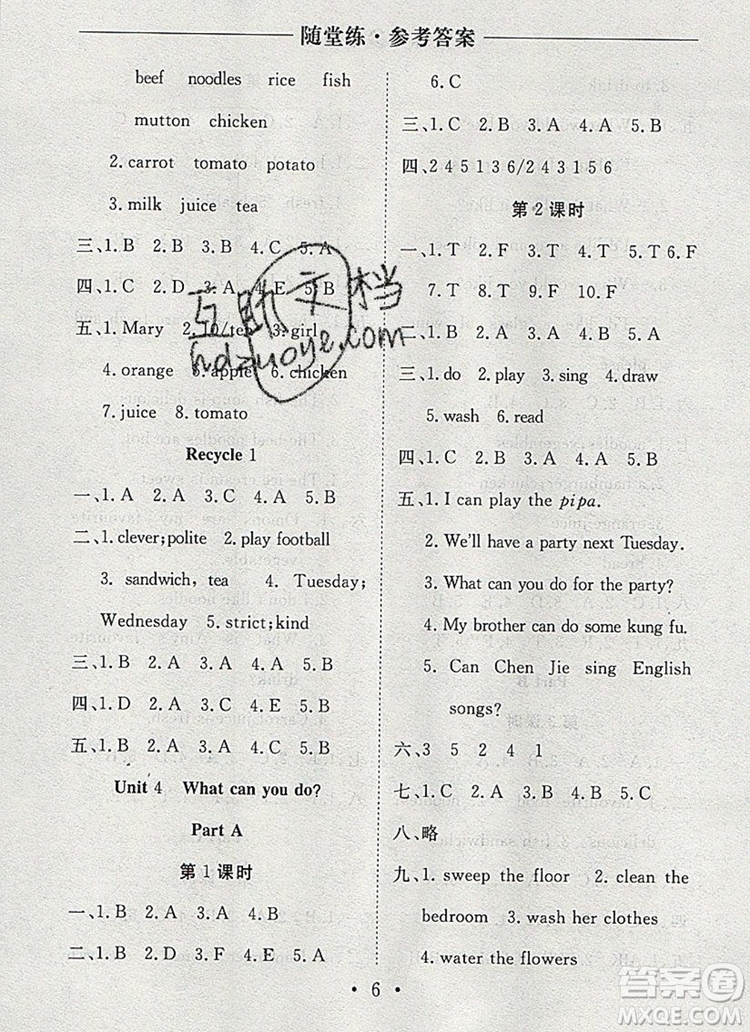 随堂练·参考答案
beef noodles rice fish
mutton chicken
2. carrot tomato potato
3. milk juice tea
三、1. B 2. A 3. B 4. C 5. A
四、1. C 2. D 3. A 4. E 5. B
五、1. Mary 2. 10/ten 3. girl
4. orange 5. apple 6. chicken
7. juice 8. tomato
Recycle 1
一、1. A 2. A 3. A 4. A 5. B
二、1. clever;polite 2. play football
3. sandwich, tea 4. Tuesday;
Wednesday 5. strict;kind
三、1. B 2. A 3. A 4. B 5. A
四、1. D 2. A 3. C 4. E 5. B
五、1. B 2. B 3. A 4. B 5. B
Unit 4 What can you do?
Part A
第 1 课时
一、1. B 2. A 3. A 4. B 5. A
二、1. B 2. D 3. F 4. E 5. A
6. C
三、1. C 2. B 3. A 4. A 5. B
四、2 4 5 1 3 6/2 4 3 1 5 6
第 2 课时
一、1. T 2. F 3. T 4. T 5. T 6. F
7. T 8. T 9. F 10. F
二、1. B 2. A 3. B 4. A 5. B
三、1. do 2. play 3. sing 4. draw
5. wash 6. read
四、1. C 2. B 3. A 4. A 5. B
五、1. I can play the pipa.
2. We'll have a party next Tuesday.
3. What can you do for the party?
4. My brother can do some kung fu.
5. Can Chen Jie sing English
songs?
六、3 5 2 4 1
七、1. C 2. B 3. B 4. A 5. C
八、略
九、1. sweep the floor 2. clean the
bedroom 3. wash her clothes
4. water the flowers
·6·
互助文档
hdzuoye.com
答案圈
MXQE.COM